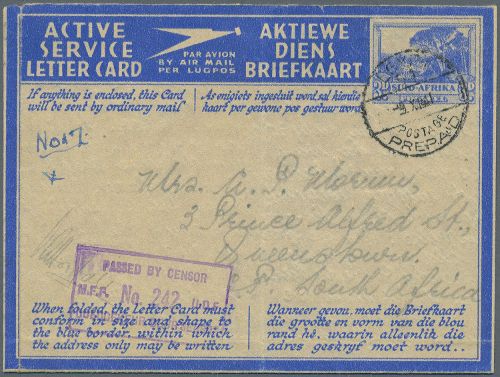 ACTIVE
SERVICE
LETTER CARD
PAR AVION
BY AIR MAIL
PER LUGPOS
AKTIEWE
DIENS
BRIEFKAART
SUID-AFRIKA
POSTAGE
PREPAID
If anything is enclosed, this Card
will be sent by ordinary mail
As enigiets ingesluit word, sal hierdie
kaart per gewone pos gestuur word
No 27.
Mrs. A. P.
3 Prince Alfred St.,
Queenstown.
C.P. South Africa
PASSED BY CENSOR
M.F.F. No. 242 U.D.F.
When folded, the Letter Card must
conform in size and shape to
the blue border, within which
the address only may be written
Wanneer gevou, moet die Briefkaart
die grootte en vorm van die blou
rand hê, waarin alleenlik die
adres geskryf moet word..